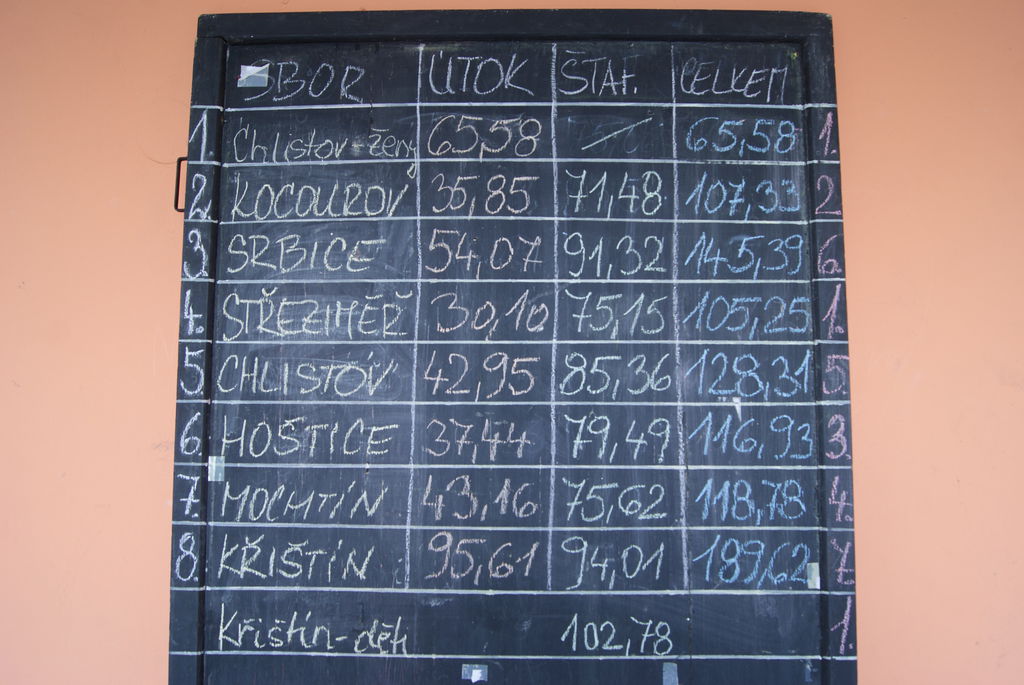 SBOR ÚTOK ŠTAF. CELKEM
1. Chlistov-ženy 65,58 65,58 1.
2. KOCOUROV 35,85 71,48 107,33 2
3. SRBICE 54,07 91,32 145,39 6.
4. STŘEZIMĚŘ 30,10 75,15 105,25 1.
5. CHLISTOV 42,95 85,36 128,31 5.
6. HOŠTICE 37,44 79,49 116,93 3.
7. MOCHTÍN 43,16 75,62 118,78 4.
8. KŘIŠTÍN 95,61 94,01 189,62 7.
Křištín-děti 102,78 1.